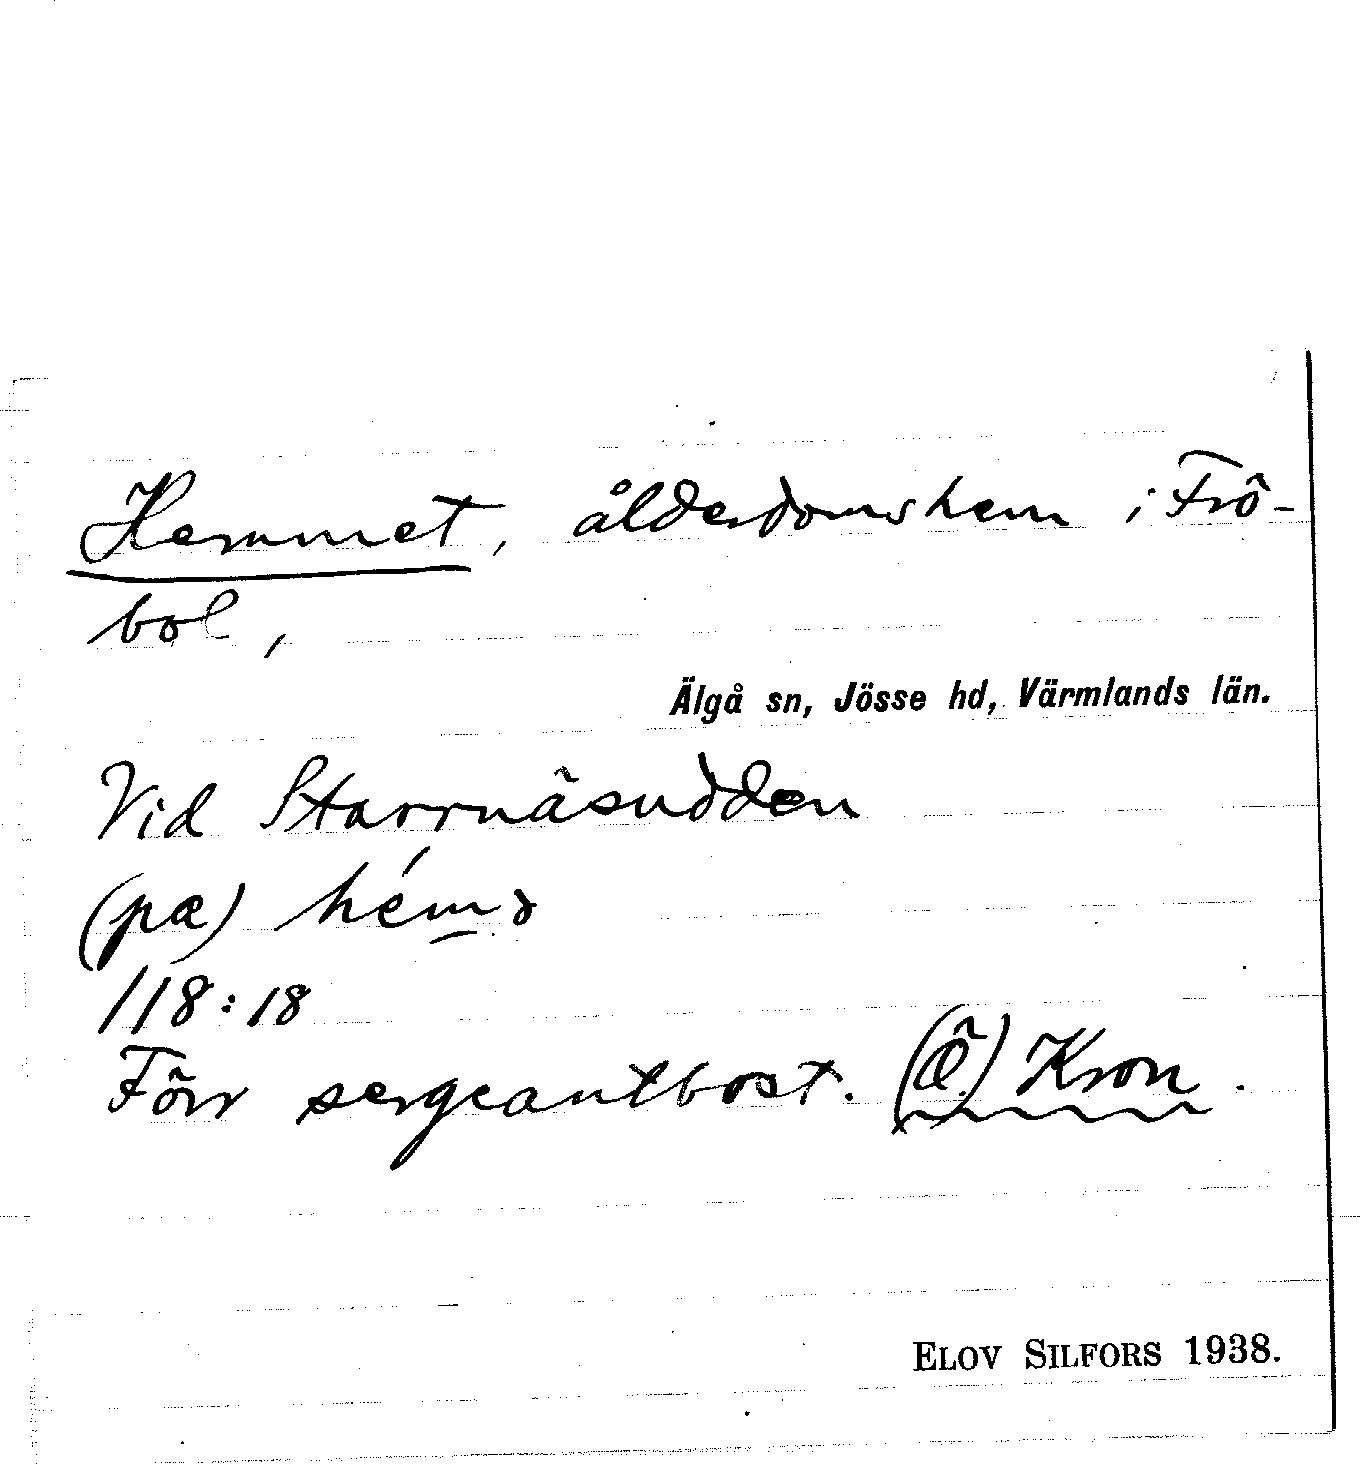 Hemmet, ålderdomshem i Frö-
bol,
Älgå sn, Jösse hd, Värmlands län.
Vid Starrnäsudden
(pæ) hém̲ə
118:18
Förr sergeantbost. (Ö) Kron.
ELOV SILFORS 1938.